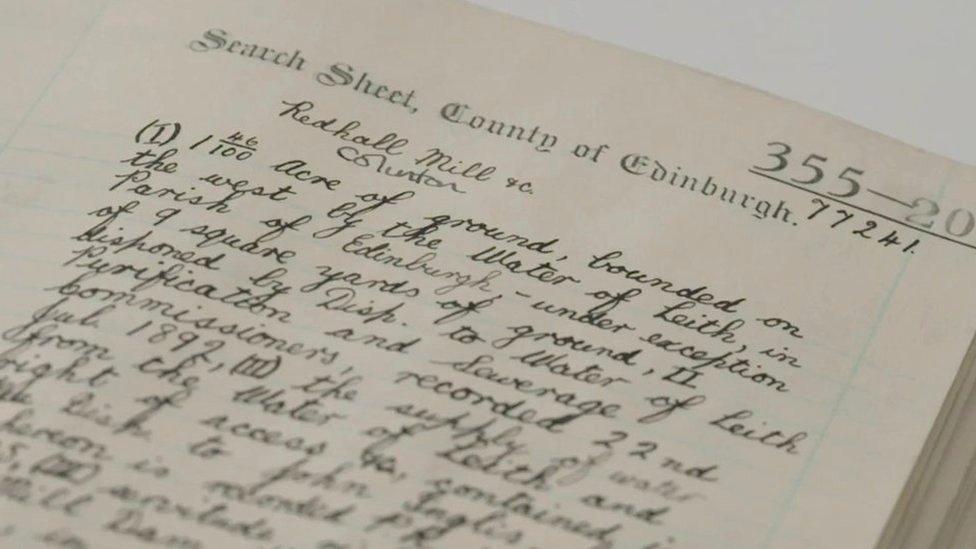 Search Sheet, County of Edinburgh.
355-20
77241.
Redhall Mill &c.
Colinton
(I) 1 46/100 Acre of ground, bounded on
the west by the Water of Leith, in
Parish of Edinburgh, - under exception
of 9 square yards of ground, II
disponed by Disp. to Water of Leith
Purification and Sewerage
Commissioners, recorded 22nd
Jul. 1892, (II) the supply of water
from the Water of Leith and
right of access &c, contained
Disp. to John Inglis
is recorded
(III) servitude
Mill Dam